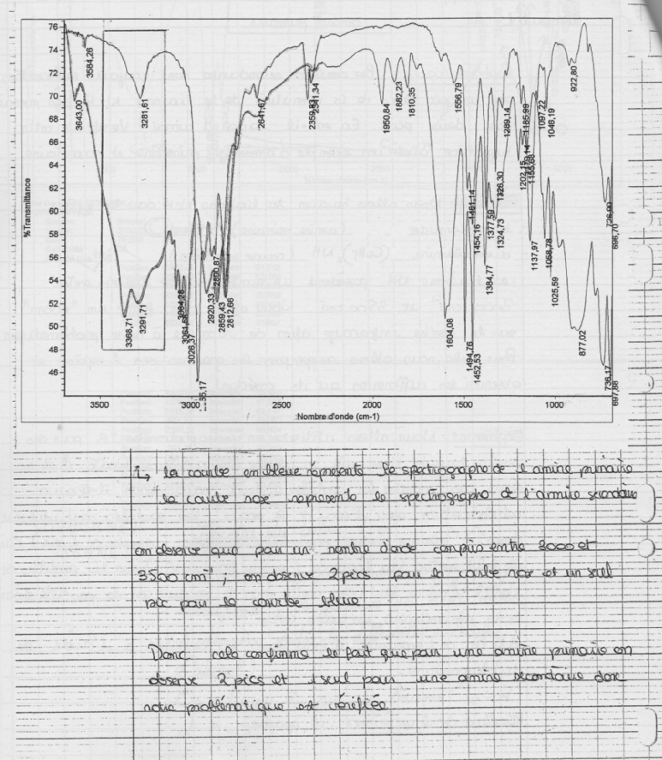 %Transmittance
76
74
72
70
68
66
64
62
60
58
56
54
52
50
48
46
3643,00
3584,26
3281,61
3366,71
3291,71
3061,66
3026,37
2920,33
2859,43
2812,66
2641,67
2341,34
1950,84
1882,23
1810,35
1604,08
1556,79
1494,76
1452,53
1461,14
1454,16
1384,77
1377,59
1326,30
1324,73
1289,14
1202,15
1185,99
1155,68
1137,97
1097,22
1058,78
1049,19
1025,59
922,80
877,02
736,17
726,00
697,88
696,70
3500
3000
2500
2000
1500
1000
Nombre d'onde (cm-1)
la courbe en bleue représente le spectrographe de l'amine primaire
la courbe rose représente le spectrographe de l'amine secondaire
on observe que pour un nombre d'onde compris entre 3000 et
3500 cm-1 ; on observe 2 pics pour la courbe rose et un seul
pic pour la courbe bleue
Donc cela confirme le fait que pour une amine primaire on
observe 2 pics et 1 seul pour une amine secondaire donc
notre problématique est vérifiée